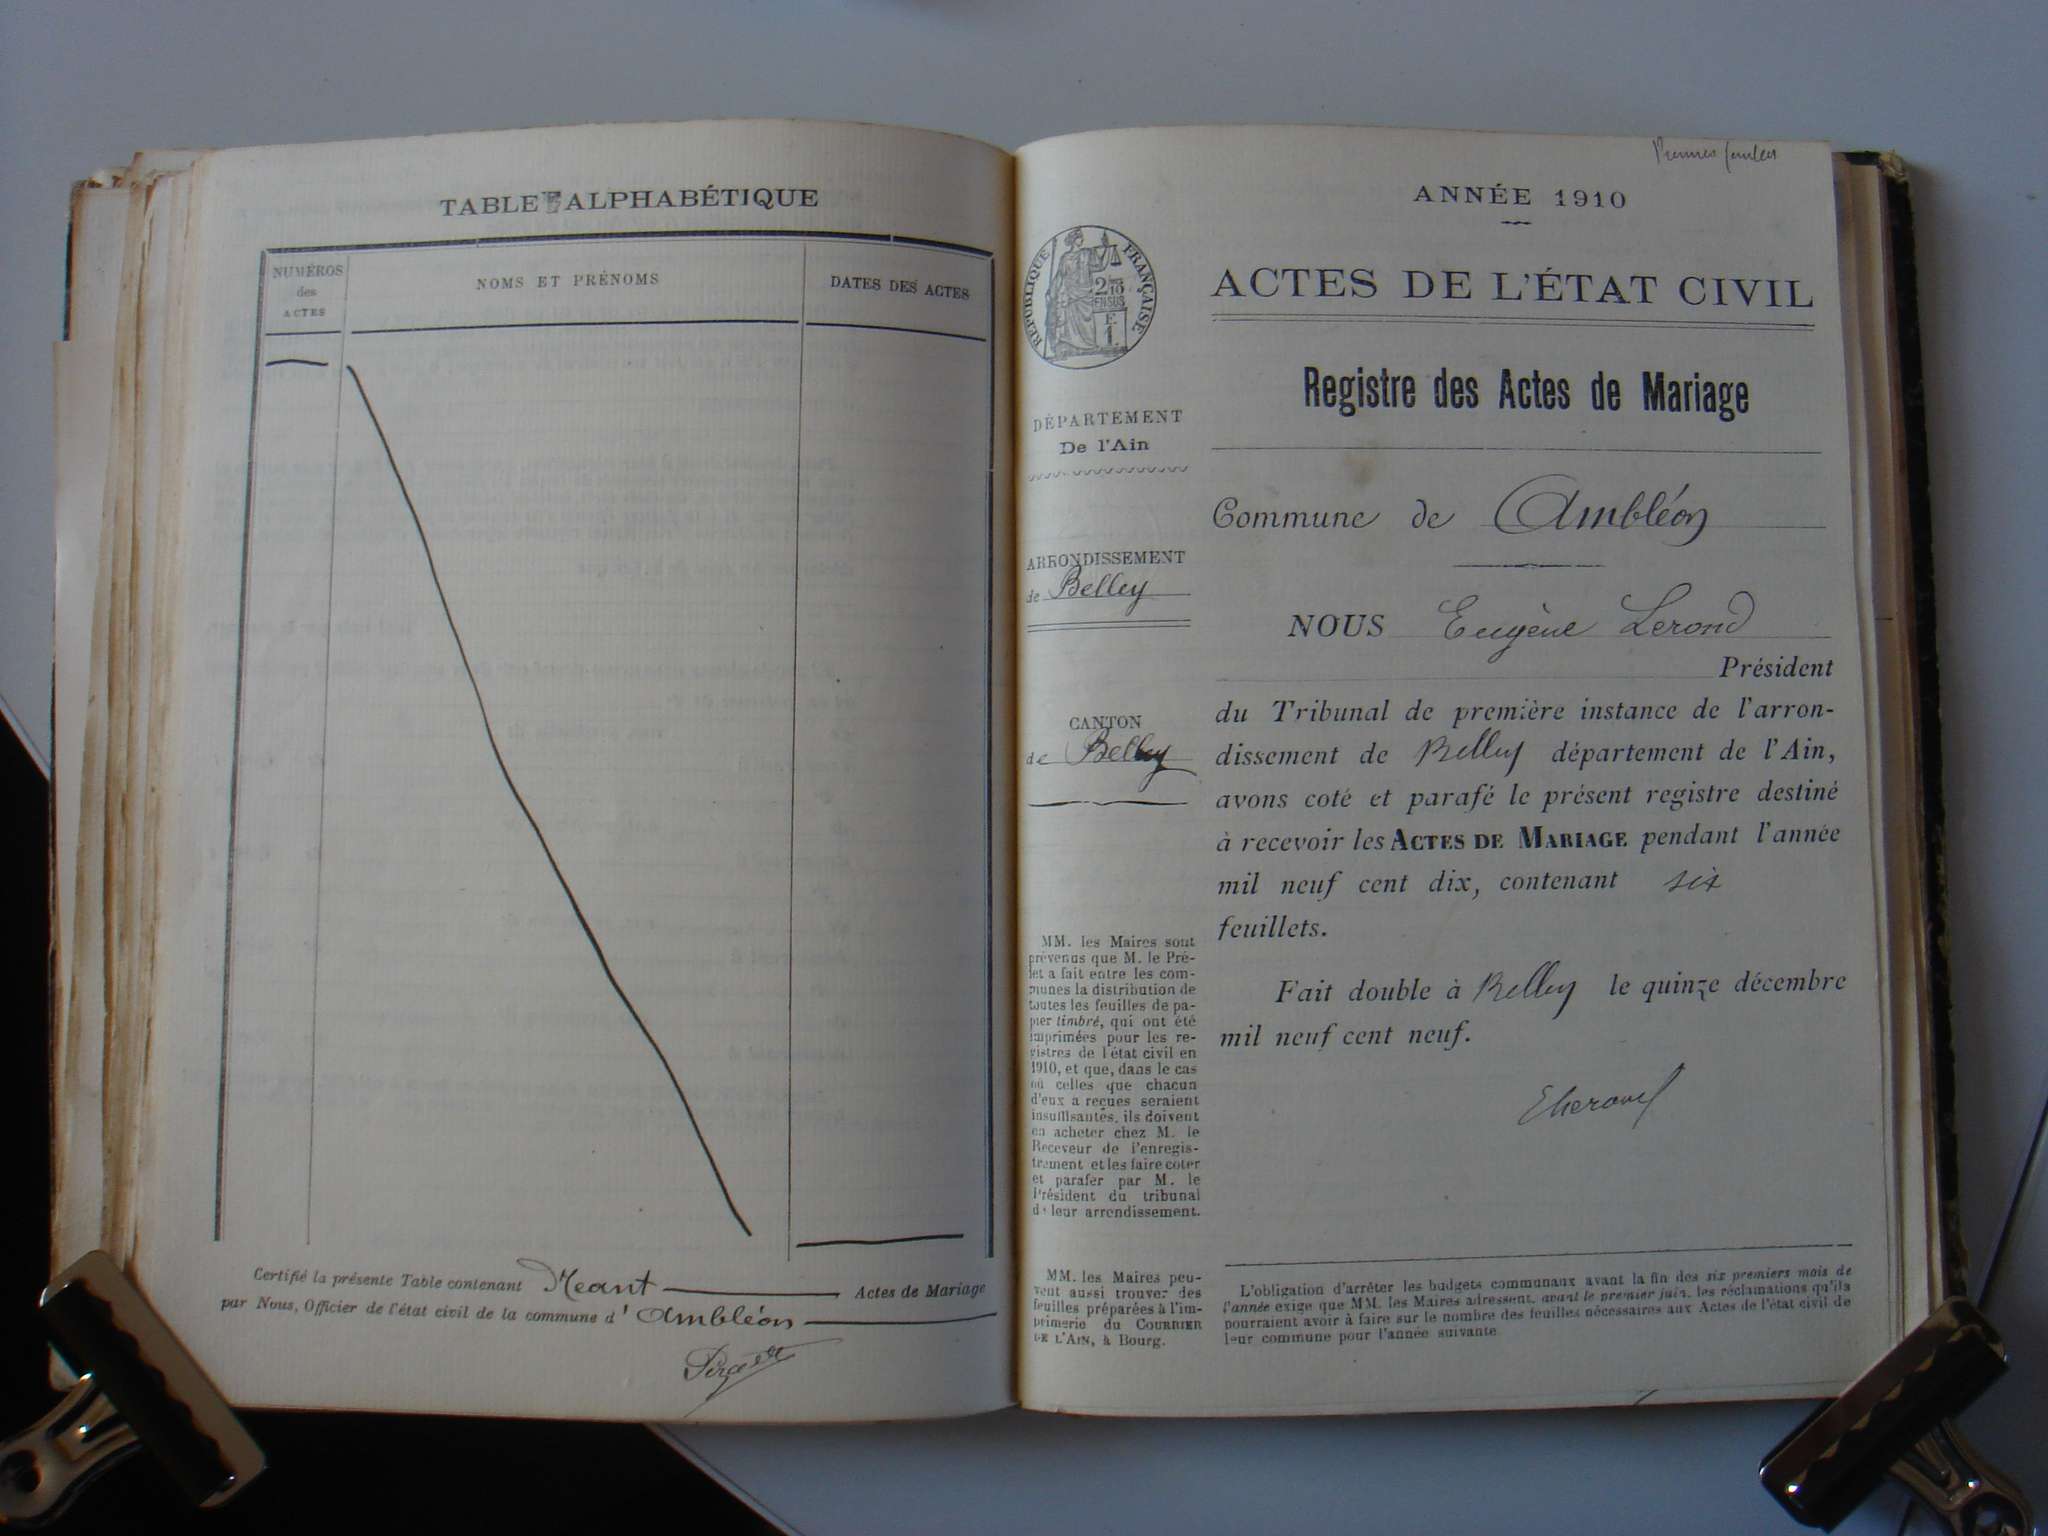 TABLE ALPHABÉTIQUE
NUMÉROS
des
ACTES
NOMS ET PRÉNOMS
DATES DES ACTES
Certifié la présente Table contenant Néant Actes de Mariage
par Nous, Officier de l'état civil de la commune d'Ambléon
Premier
ANNÉE 1910
ACTES DE L'ÉTAT CIVIL
RÉPUBLIQUE FRANÇAISE
Registre des Actes de Mariage
DÉPARTEMENT
De l'Ain
ARRONDISSEMENT
de Belley
CANTON
de Belley
MM. les Maires sont
prévenus que M. le Pré-
fet a fait entre les com-
munes la distribution de
toutes les feuilles de pa-
pier timbré, qui ont été
imprimées pour les re-
gistres de l'état civil en
1910, et que, dans le cas
où celles que chacun
d'eux a reçues seraient
insuffisantes, ils doivent
en acheter chez M. le
Receveur de l'enregis-
trement et les faire coter
et parafer par M. le
Président du tribunal
de leur arrondissement.
MM. les Maires peu-
vent aussi trouver des
feuilles préparées à l'im-
primerie du COURRIER
DE L'AIN, à Bourg.
Commune de Ambléon
NOUS Eugène Lerond
Président
du Tribunal de première instance de l'arron-
dissement de Belley département de l'Ain,
avons coté et parafé le présent registre destiné
à recevoir les ACTES DE MARIAGE pendant l'année
mil neuf cent dix, contenant six
feuillets.
Fait double à Belley le quinze décembre
mil neuf cent neuf.
L'obligation d'arrêter les budgets communaux avant la fin des six premiers mois de
l'année exige que MM. les Maires adressent, avant le premier juin, les réclamations qu'ils
pourraient avoir à faire sur le nombre des feuilles nécessaires aux Actes de l'état civil de
leur commune pour l'année suivante.